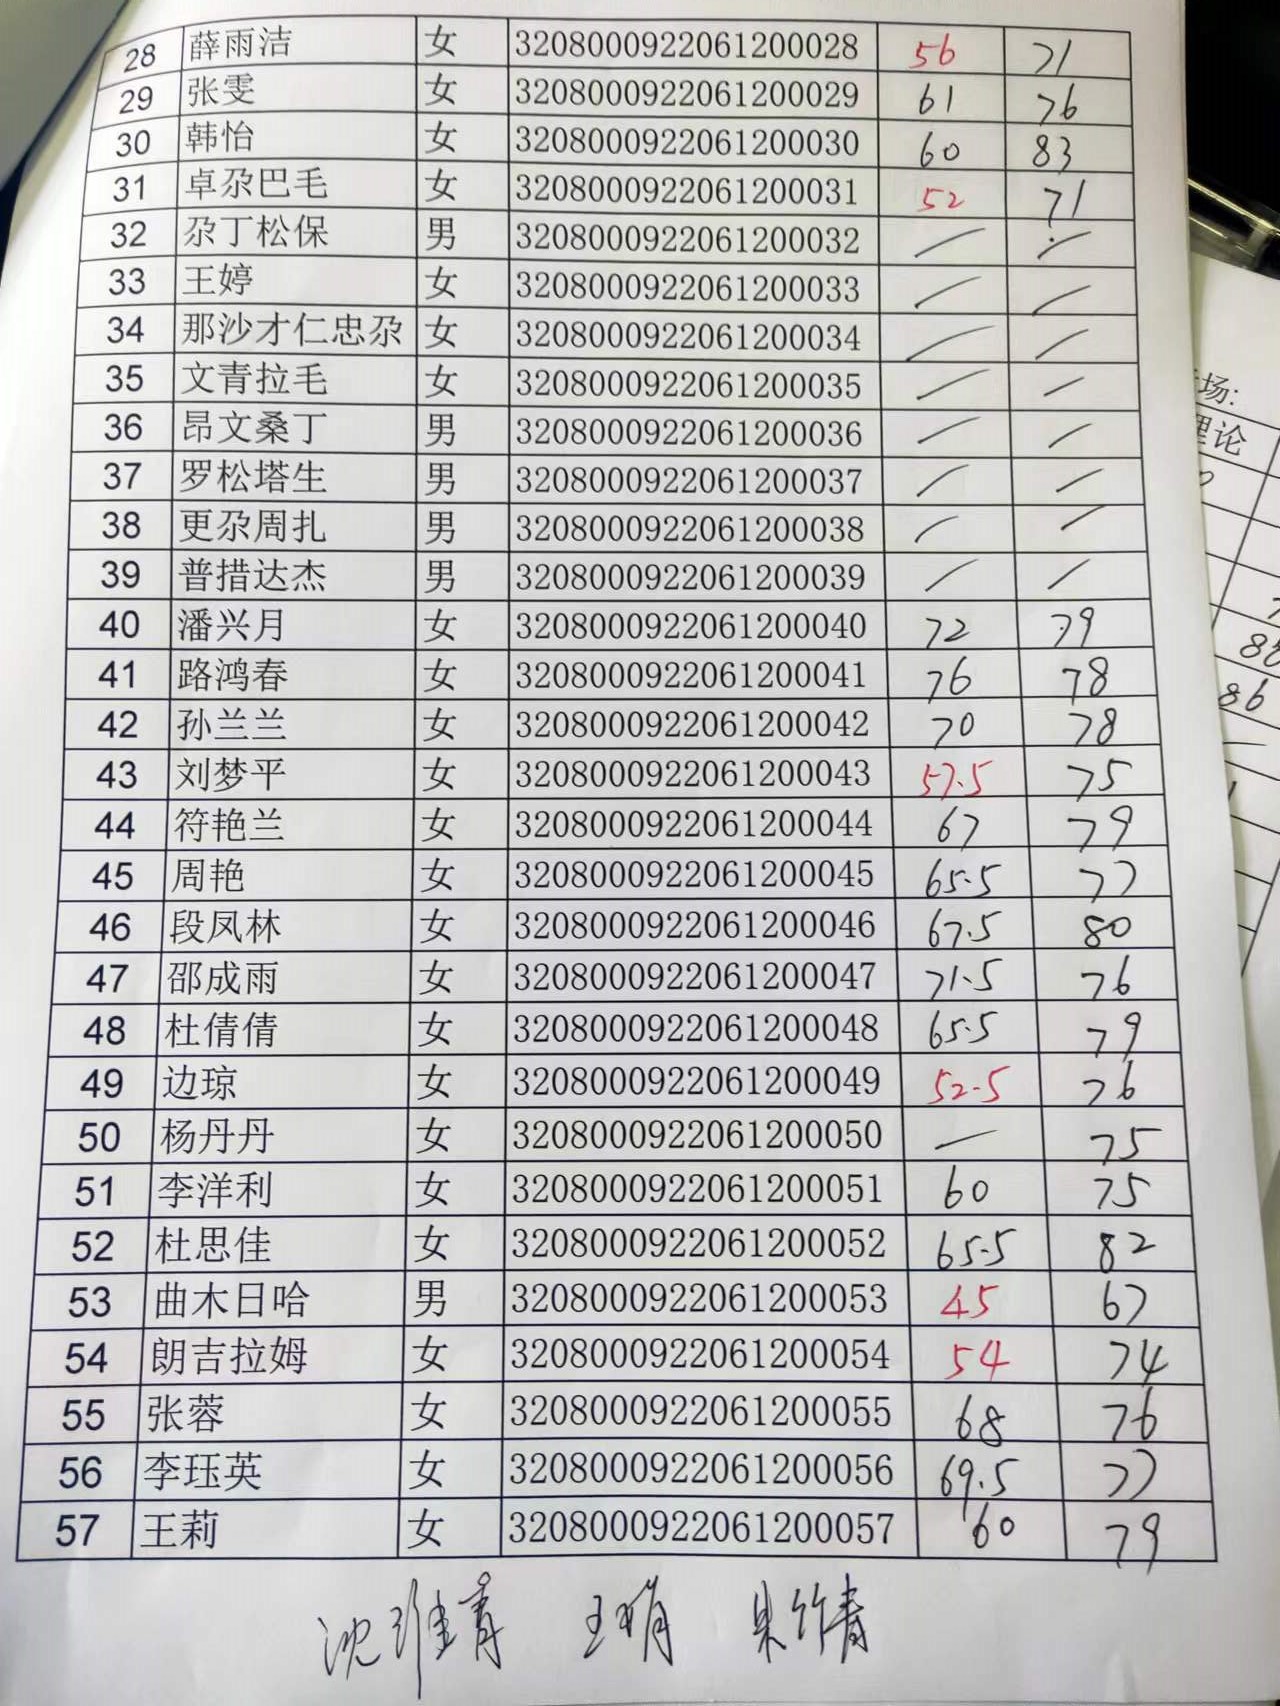 28 薛雨洁 女 3208000922061200028 56 71
29 张雯 女 3208000922061200029 61 76
30 韩怡 女 3208000922061200030 60 83
31 卓尕巴毛 女 3208000922061200031 52 71
32 尕丁松保 男 3208000922061200032 / /
33 王婷 女 3208000922061200033 / /
34 那沙才仁忠尕 女 3208000922061200034 / /
35 文青拉毛 女 3208000922061200035 / /
36 昂文桑丁 男 3208000922061200036 / /
37 罗松塔生 男 3208000922061200037 / /
38 更尕周扎 男 3208000922061200038 / /
39 普措达杰 男 3208000922061200039 / /
40 潘兴月 女 3208000922061200040 72 79
41 路鸿春 女 3208000922061200041 76 78
42 孙兰兰 女 3208000922061200042 70 78
43 刘梦平 女 3208000922061200043 57.5 75
44 符艳兰 女 3208000922061200044 67 79
45 周艳 女 3208000922061200045 65.5 77
46 段凤林 女 3208000922061200046 67.5 80
47 邵成雨 女 3208000922061200047 71.5 76
48 杜倩倩 女 3208000922061200048 65.5 79
49 边琼 女 3208000922061200049 52.5 76
50 杨丹丹 女 3208000922061200050 — 75
51 李洋利 女 3208000922061200051 60 75
52 杜思佳 女 3208000922061200052 65.5 82
53 曲木日哈 男 3208000922061200053 45 67
54 朗吉拉姆 女 3208000922061200054 54 74
55 张蓉 女 3208000922061200055 68 76
56 李珏英 女 3208000922061200056 69.5 77
57 王莉 女 3208000922061200057 60 79
场:
理论
86